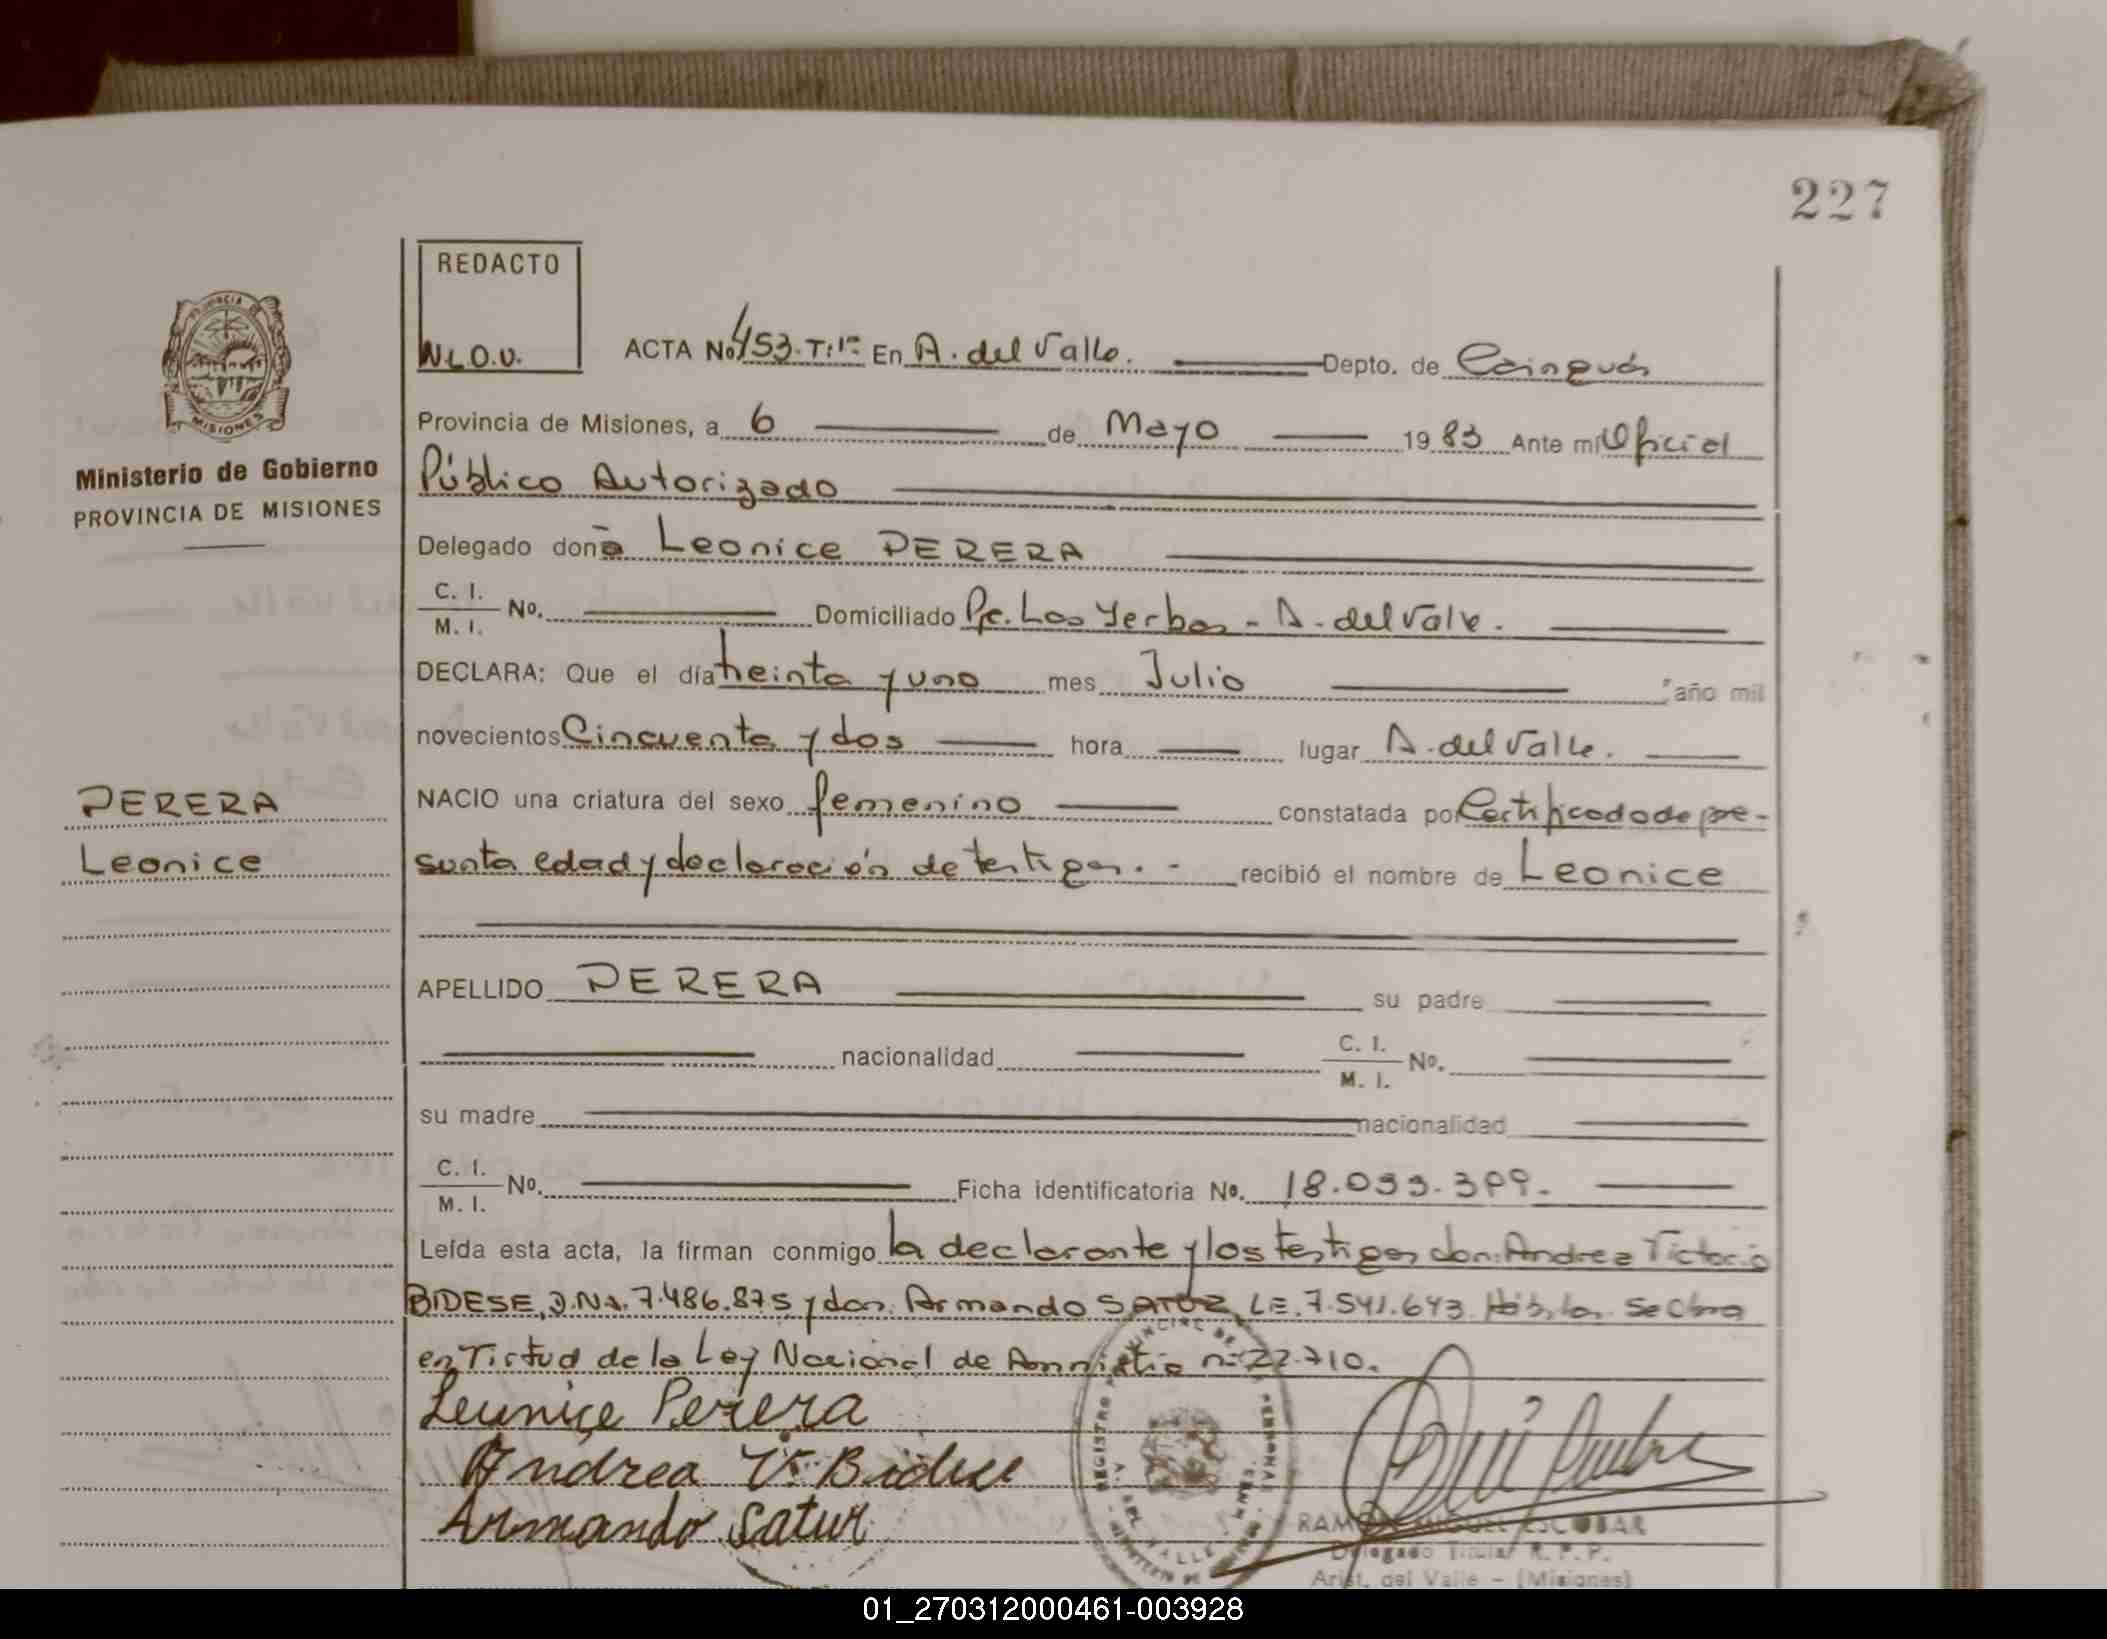 227
REDACTO
N.L.O.V.
ACTA No 453. T: 1º En A. del Valle. Depto. de Cainguás
Provincia de Misiones, a 6 de Mayo 1983 Ante mi Oficial
Público Autorizado
Ministerio de Gobierno
PROVINCIA DE MISIONES
Delegado doña Leonice PERERA
C. I.
M. I. No. Domiciliado Pje. Las Yerbas - A. del Valle.
DECLARA: Que el día treinta y uno mes Julio año mil
novecientos Cincuenta y dos hora lugar A. del Valle.
PERERA
Leonice
NACIO una criatura del sexo femenino constatada por Certificado de pre-
sunta edad y declaración de testigos. - recibió el nombre de Leonice
APELLIDO PERERA su padre
nacionalidad C. I.
M. I. No.
su madre nacionalidad
C. I.
M. I. No. Ficha identificatoria No. 18.033.399.
Leída esta acta, la firman conmigo la declarante y los testigos don: Andrea Victorio
BIDESE, D.N.I. 7.486.875 y don: Armando SATUR L.E. 7.541.643 Hábiles. Se labra
en Virtud de la Ley Nacional de Amnistia nº 22.710.
Leunice Perera
Andrea V. Bidese
Armando Satur
RAMON MIGUEL ESCOBAR
Delegado Titular R. P. P.
Arist. del Valle - (Misiones)
01_270312000461-003928